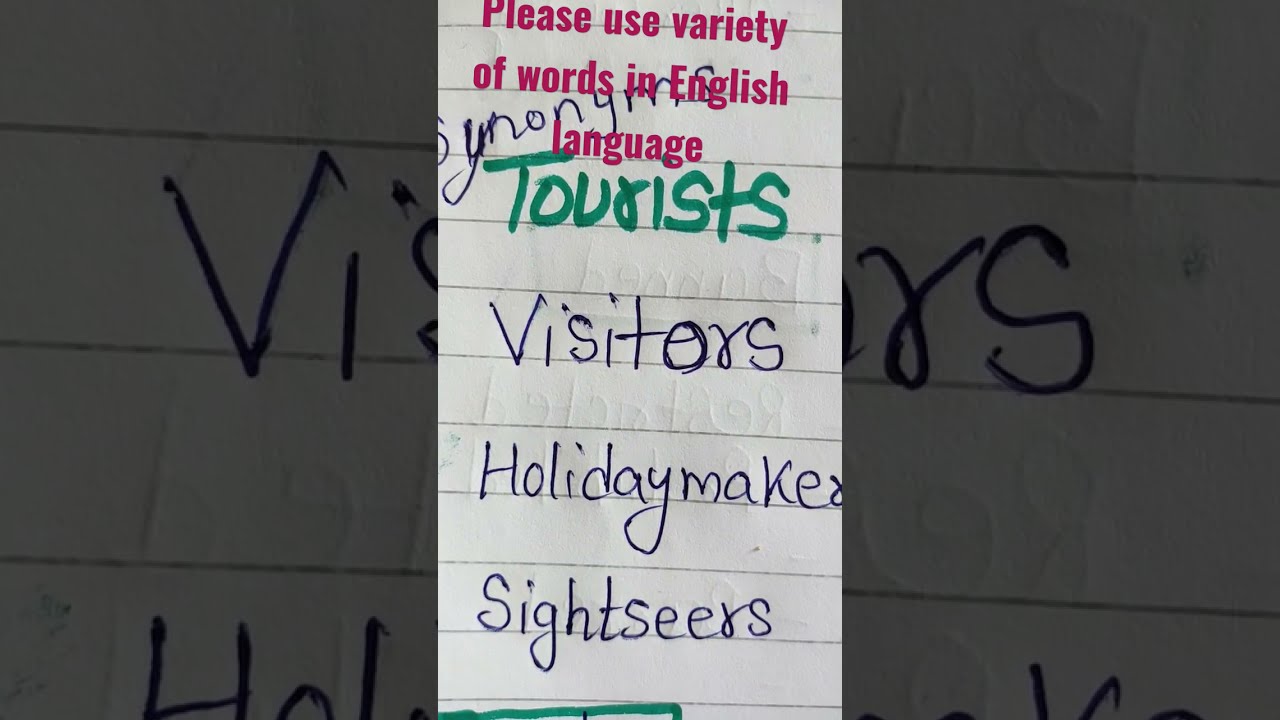 Please use variety
of words in English
language
Synonyms
Tourists
Visitors
Holidaymaker
Sightseers